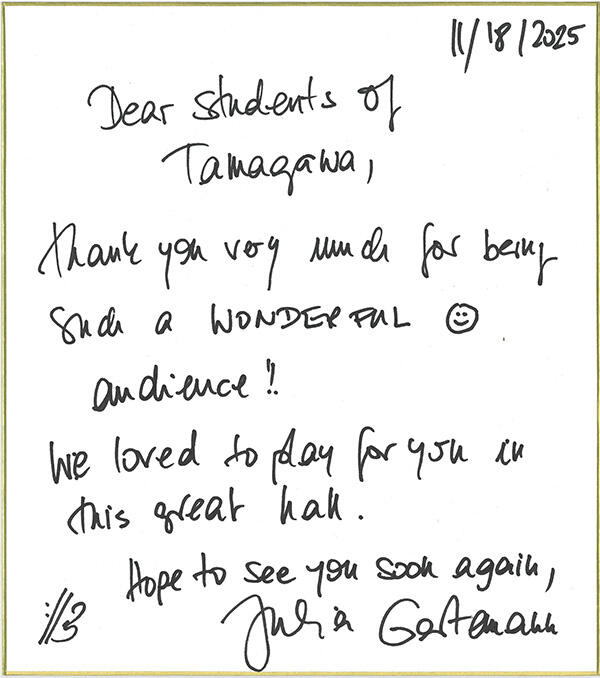 11/18/2025
Dear students of
Tamagawa,
thank you very much for being
such a WONDERFUL ☺
audience!!
We loved to play for you in
this great hall.
Hope to see you soon again,
Julia Gartemann